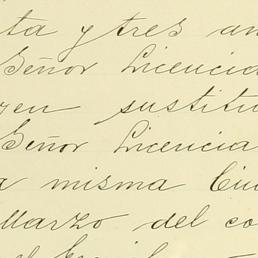 ta y tres an
Señor Licencia
yen sustitu
Señor Licencia
a misma Ciu
Marzo del co